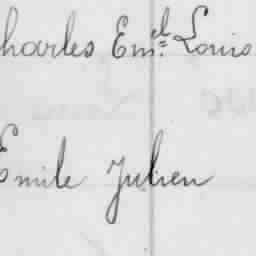 harles Em.el Louis
Emile Julien